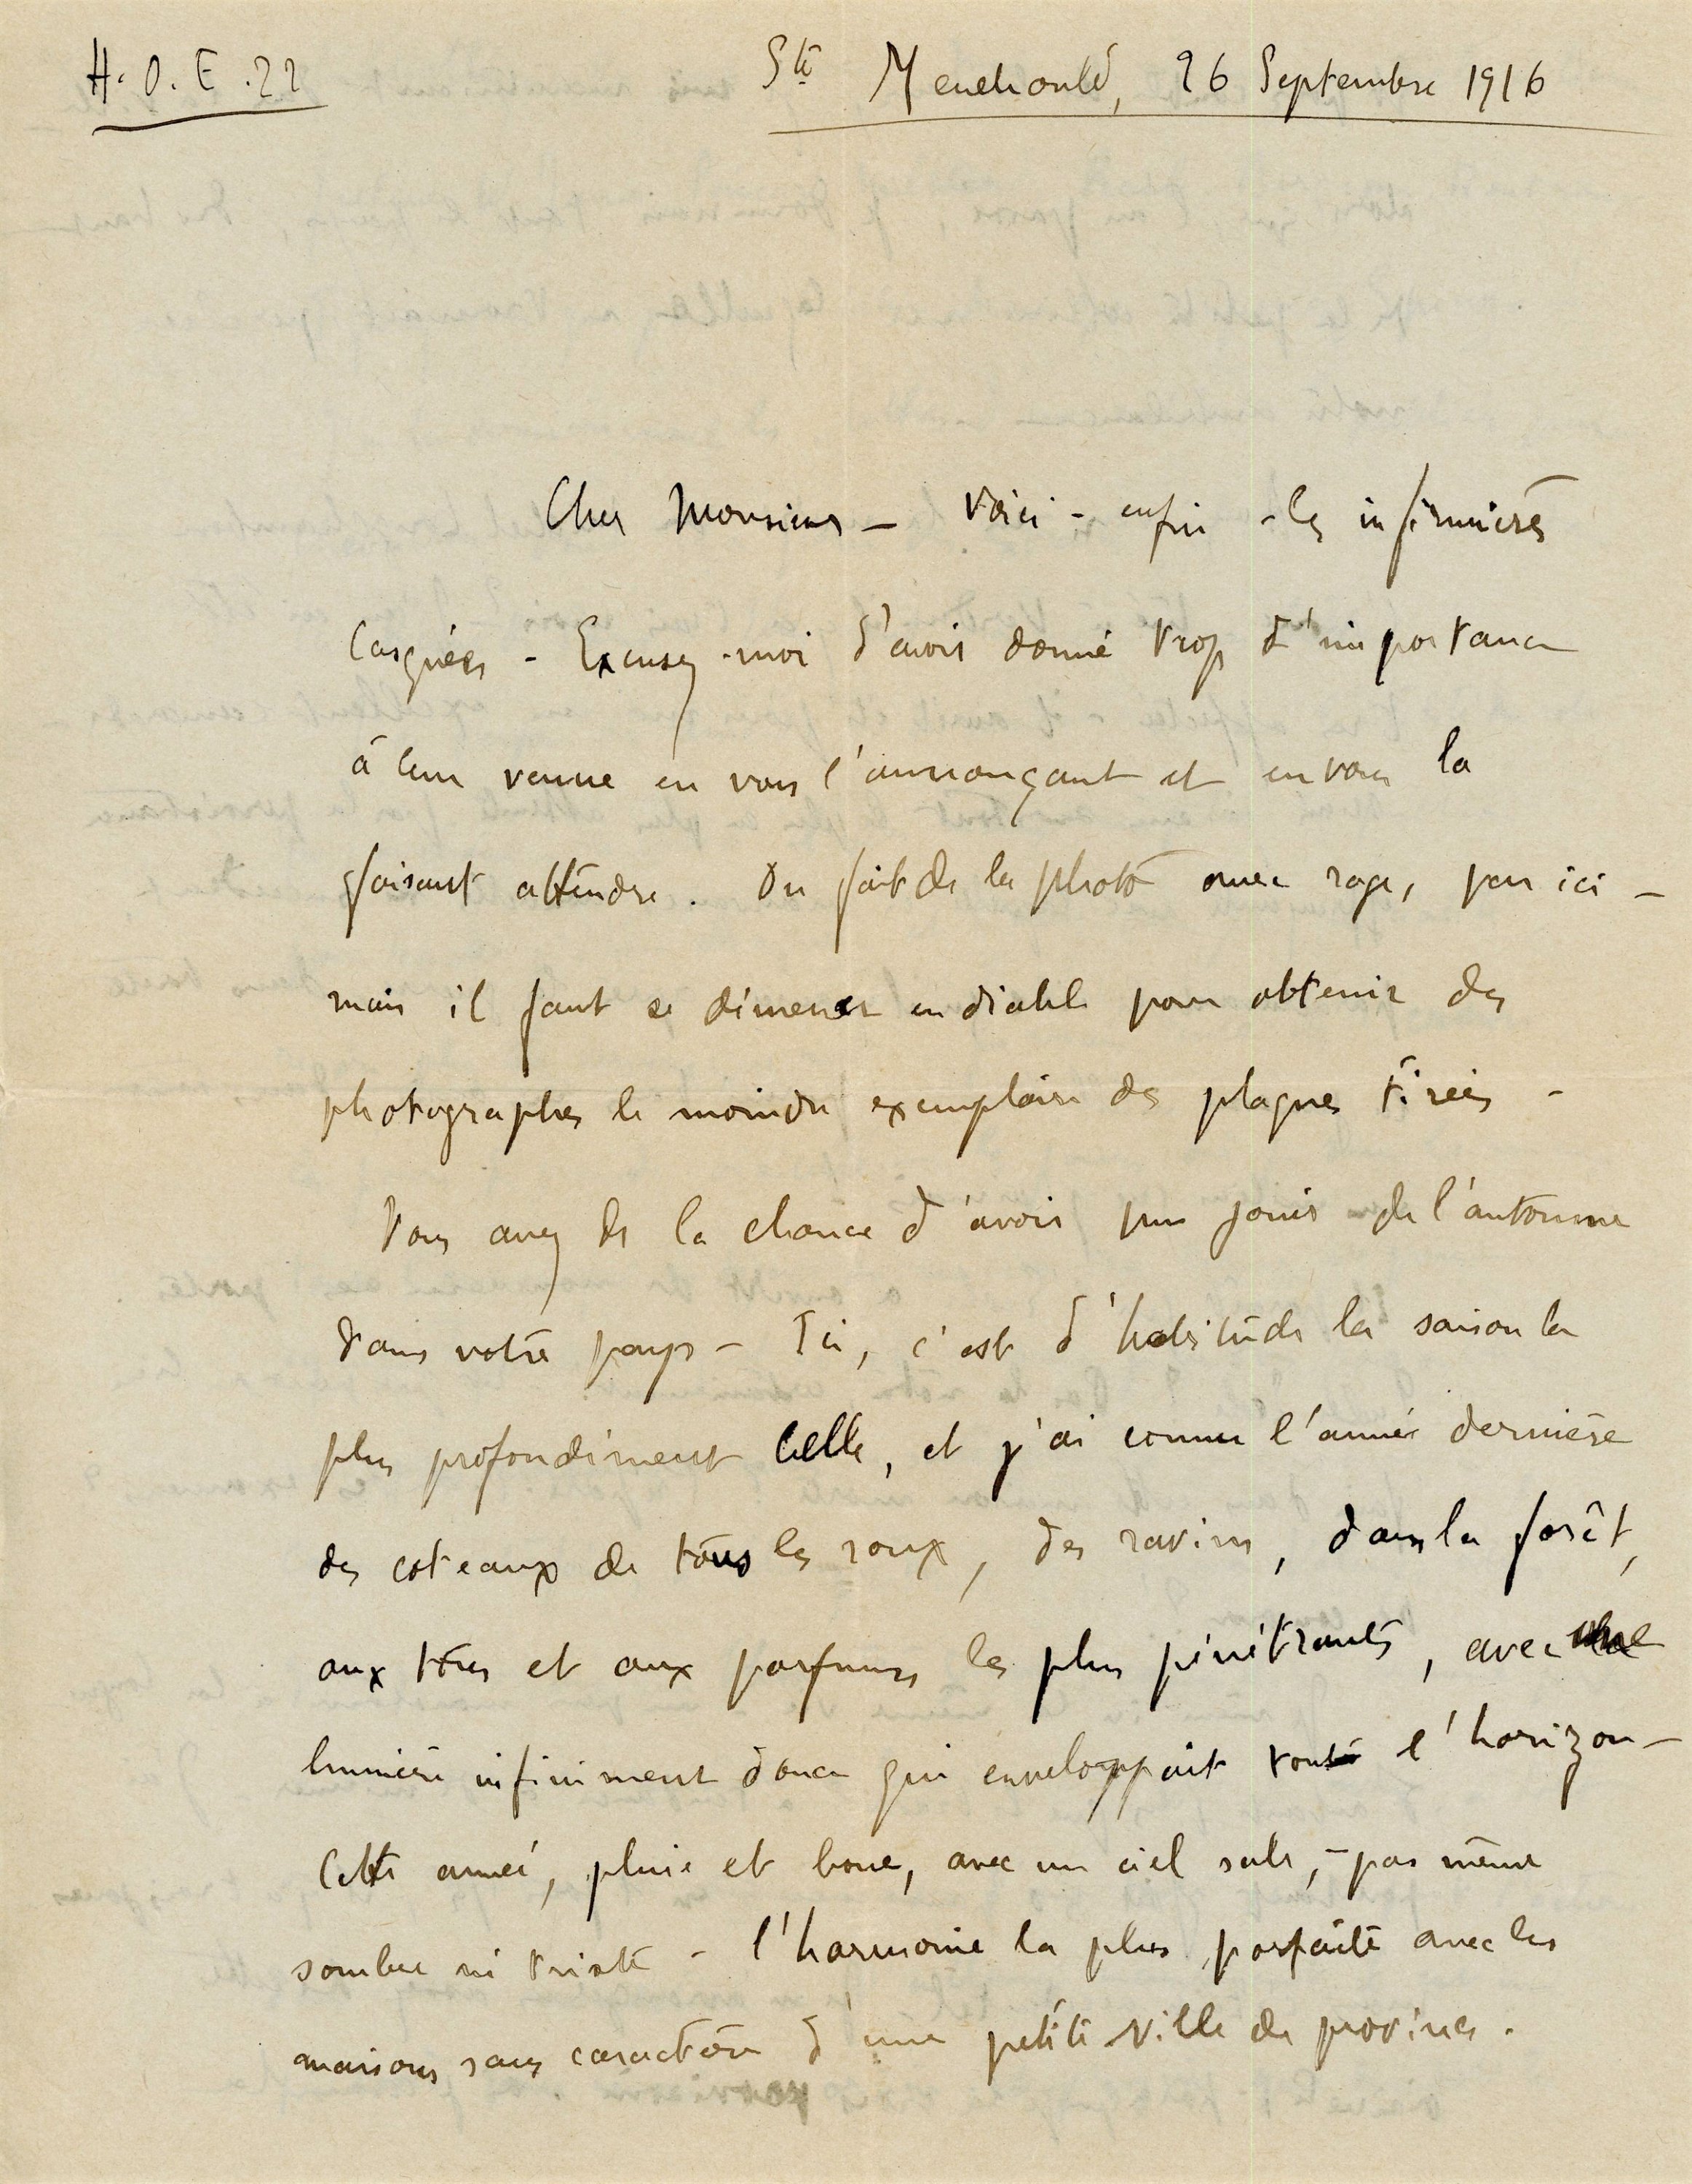 H. O. E. 22
Ste Menehould, 26 Septembre 1916
Cher Monsieur — Voici - enfin - les infirmières
casquées - Excusez-moi d'avoir donné trop d'importance
à leur venue en vous l'annonçant et en vous la
faisant attendre. On fait de la photo avec rage, par ici —
mais il faut se démener en diable pour obtenir des
photographes le moindre exemplaire des plaques tirées -
Vous avez de la chance d'avoir pu jouir de l'automne
dans votre pays - Ici, c'est d'habitude la saison la
plus profondément belle, et j'ai connu l'année dernière
des coteaux de tous les roux, des ravins, dans la forêt,
aux tons et aux parfums les plus pénétrants, avec une
lumière infiniment douce qui enveloppait tout l'horizon —
Cette année, pluie et boue, avec un ciel sale, - pas même
sombre ni triste - l'harmonie la plus parfaite avec les
maisons sans caractère d'une petite ville de province.